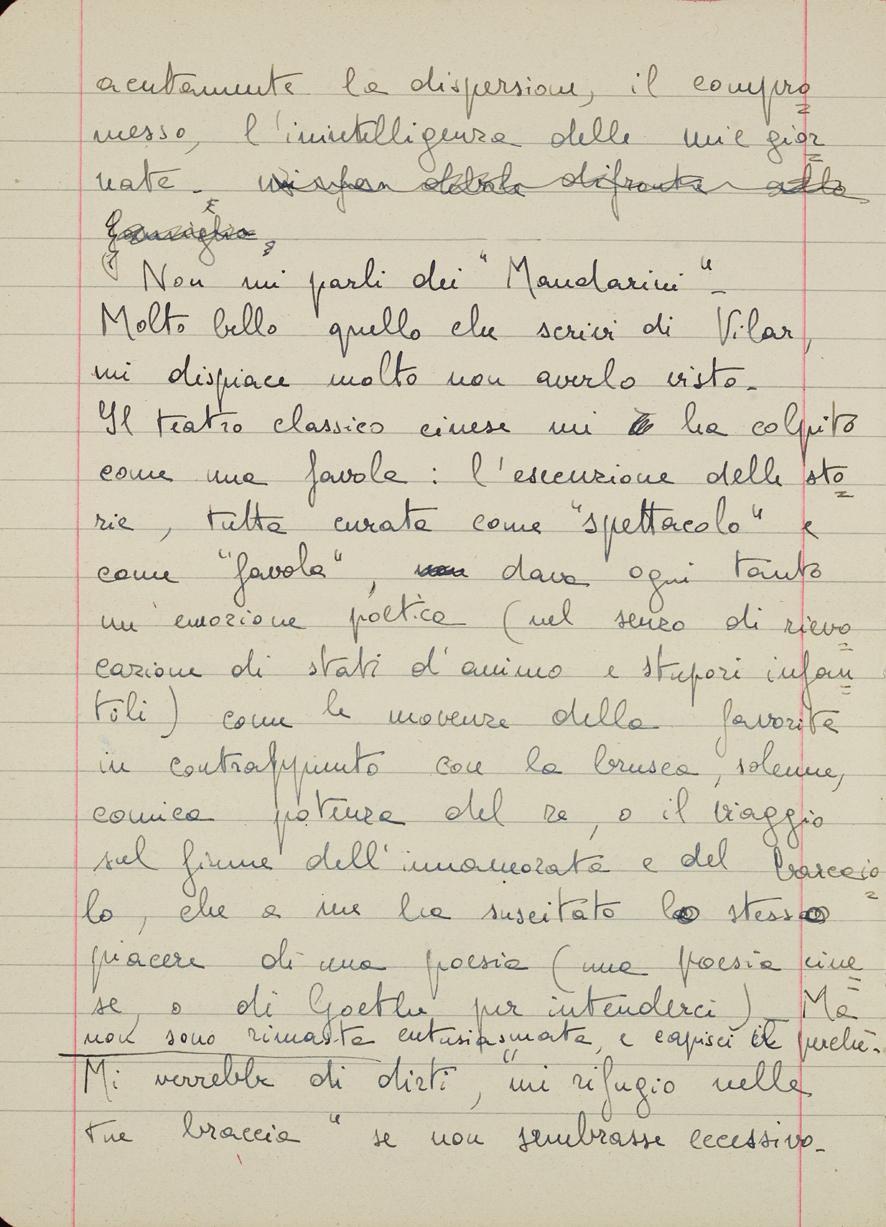 acutamente la dispersione, il compro=
messo, l'inintelligenza delle mie gior=
nate - di fronte alla
famiglia
Non mi parli dei "Mandarini" -
Molto bello quello che scrivi di Vilar,
mi dispiace molto non averlo visto -
Il teatro classico cinese mi ha colpito
come una favola : l'esecuzione delle sto=
rie, tutta curata come "spettacolo" e
come "favola", non dava ogni tanto
un'emozione poetica (nel senso di rievo=
cazione di stati d'animo e stupori infan=
tili) come le movenze della favorita
in contrappunto con la brusca, solenne,
comica potenza del re, o il viaggio
sul fiume dell'innamorata e del barcaio=
lo, che a me ha suscitato lo stesso
piacere di una poesia (una poesia cine=
se, o di Goethe per intenderci). Ma
non sono rimasta entusiasmata, e capisci il perchè -
Mi verrebbe di dirti, "mi rifugio nelle
tue braccia" se non sembrasse eccessivo -